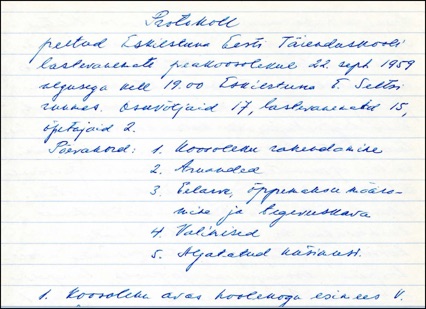 Protokoll
peetud Eskilstuna Eesti Täienduskooli
lastevanemate peakoosolekul 22. sept 1959
algusega kell 19.00 Eskilstuna E. Seltsi
ruumes. Osavõtjaid 17, lastevanemaid 15,
õpetajaid 2.
Päevakord: 1. Koosoleku rakendamine
2. Aruanded
3. Eelarve, õppemaksu määra-
mine ja tegevuskava
4. Valimised
5. Algatatud küsimusi.
1. Koosoleku avas hoolekogu esimees V.